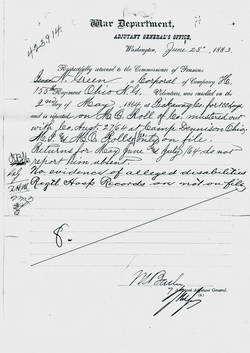 423914
War Department,
ADJUTANT GENERAL'S OFFICE,
Washington, June 25th, 1883.
Respectfully returned to the Commissioner of Pensions.
W. Green, a Corporal of Company H,
155th Regiment Ohio N.G. Volunteers, was enrolled on the
2nd day of May, 1864, at for 100 days
and is reported on M.O. Roll of Co. mustered out
with Co. Aug. 27/64 at Camp Dennison Ohio.
M.I. & M.O. Rolls only on file.
Returns for May June & July/64 do not
report him absent.
No evidence of alleged disabilities
Regtl Hosp Records are not on file
8.
Assistant Adjutant General.